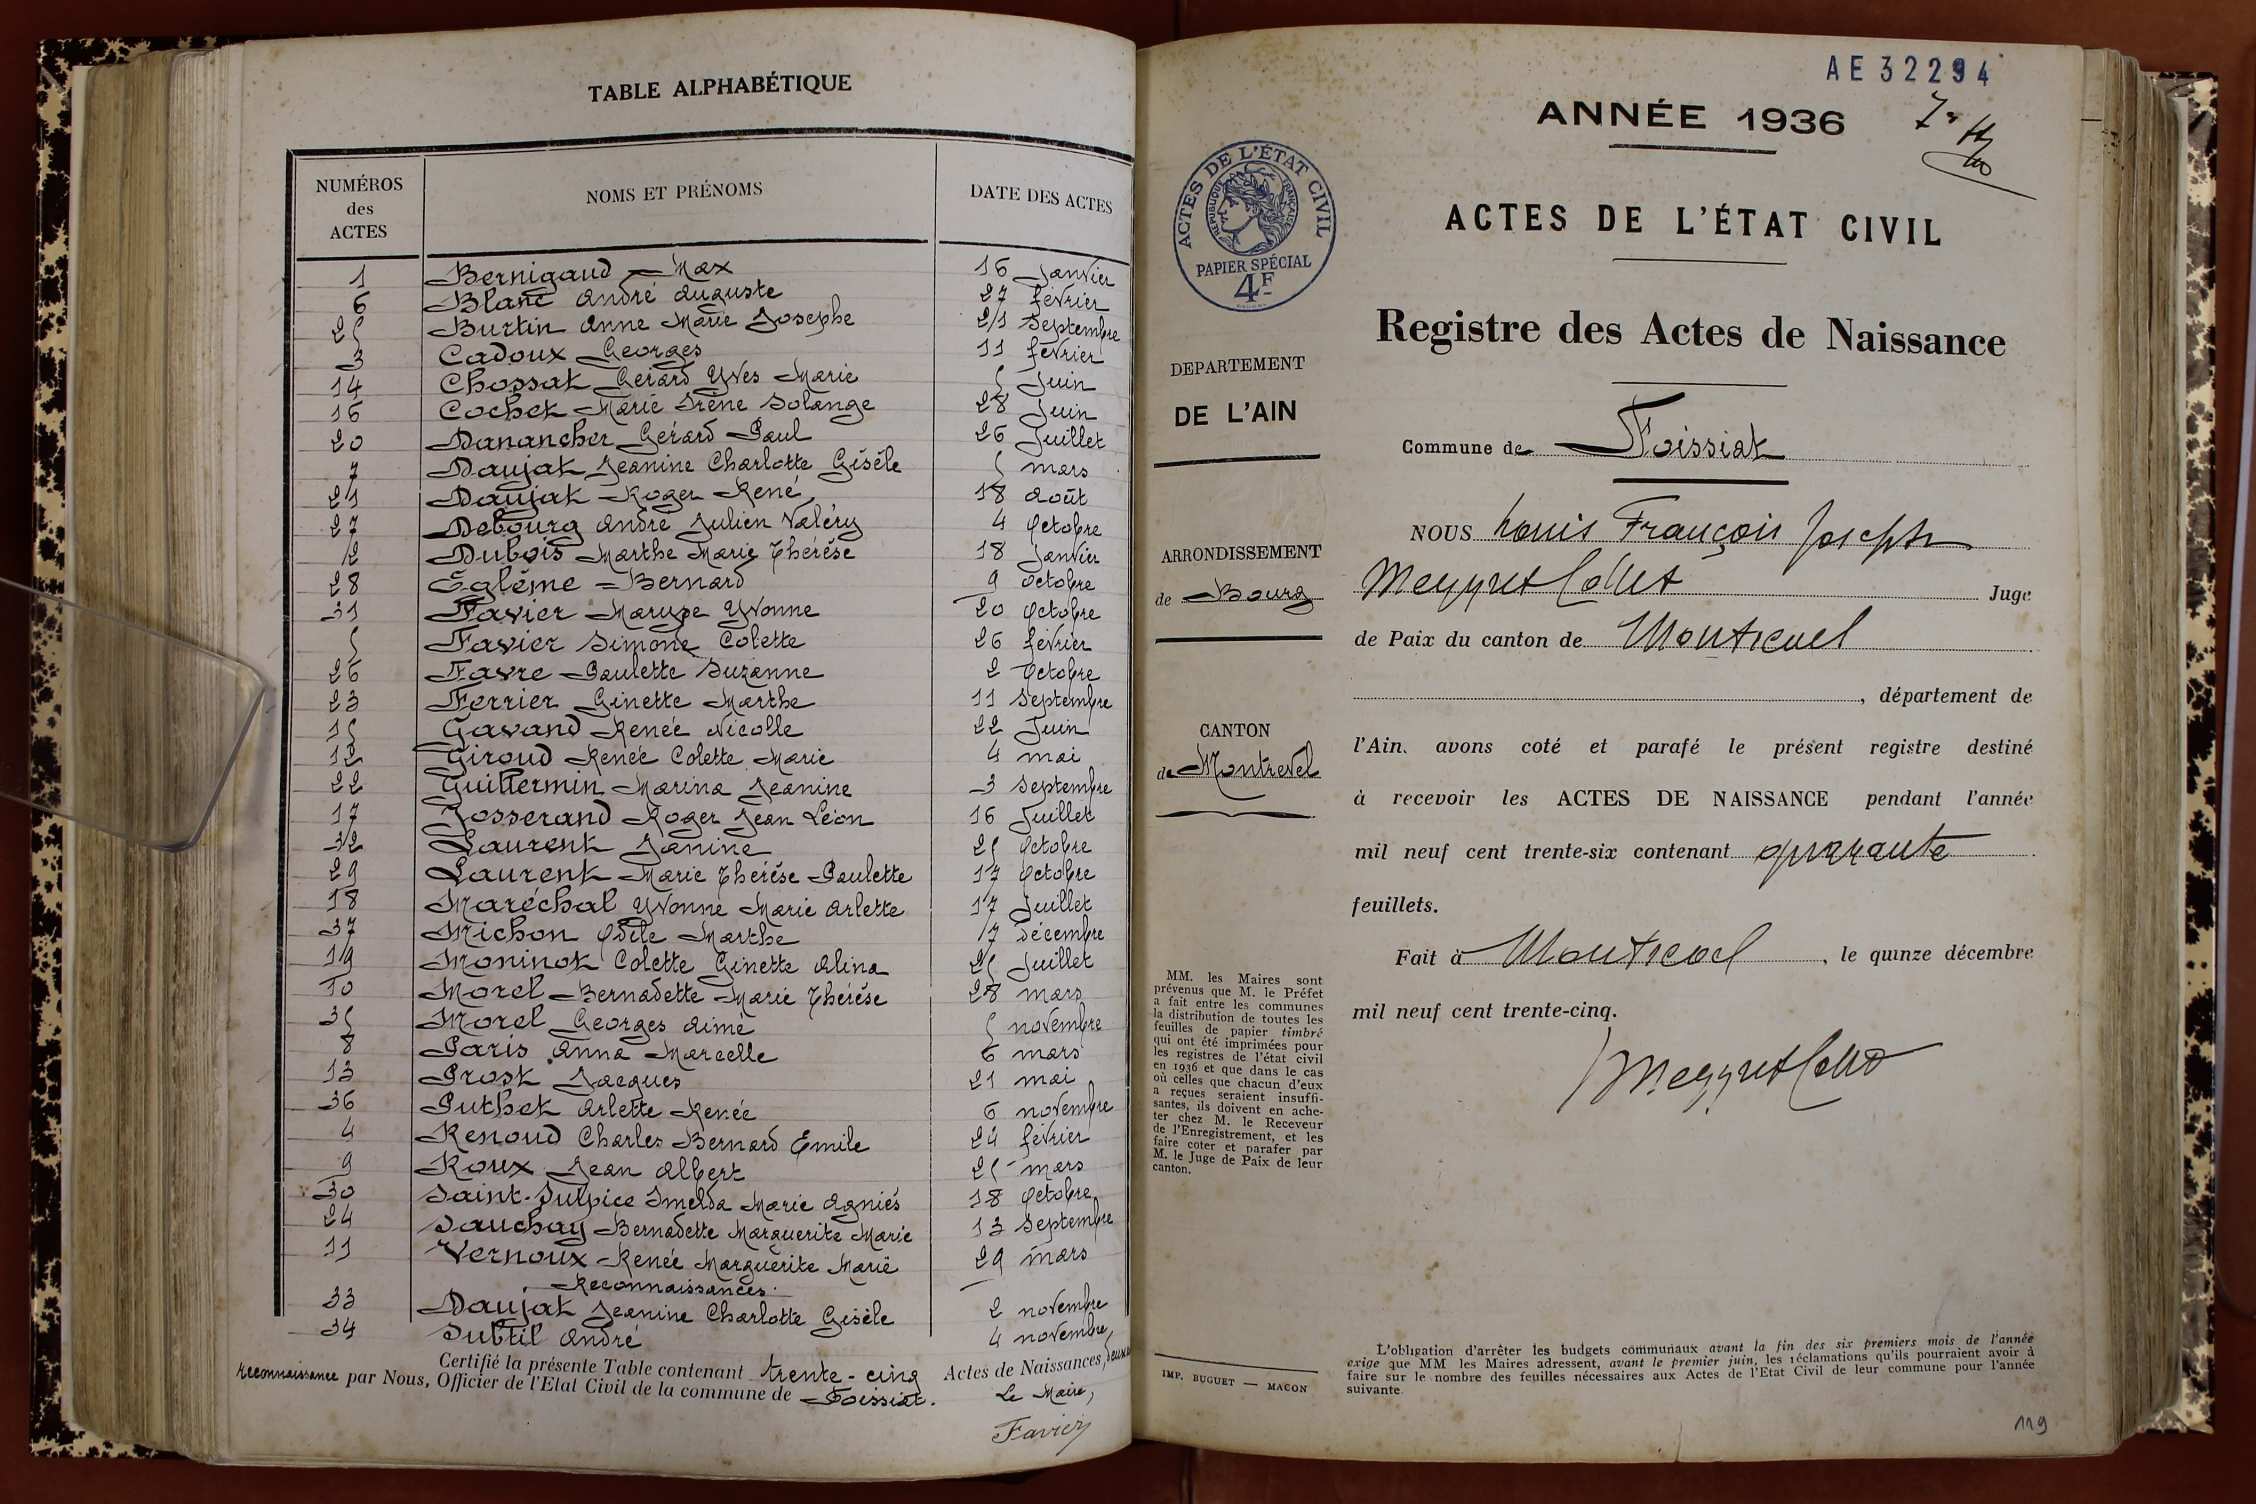 TABLE ALPHABÉTIQUE
NUMÉROS des ACTES NOMS ET PRÉNOMS DATE DES ACTES
1 Bernigaud Max 16 Janvier
6 Blanc André Auguste 27 février
25 Burtin Anne Marie Josephe 21 Septembre
3 Cadoux Georges 11 février
14 Chossat Gérard Yves Marie 5 Juin
16 Cochet Marie Irène Solange 28 Juin
20 Danancher Gérard Paul 26 Juillet
7 Daujat Jeanine Charlotte Gisèle 5 mars
21 Daujat Roger René 18 août
27 Debourg André Julien Valéry 4 Octobre
2 Dubois Marthe Marie Thérèse 18 Janvier
28 Eglème Bernard 9 octobre
31 Favier Maryse Yvonne 20 Octobre
5 Favier Simone Colette 26 février
26 Favre Paulette Suzanne 2 Octobre
23 Ferrier Ginette Marthe 11 Septembre
15 Gavand Renée Nicolle 22 Juin
12 Giroud Renée Colette Marie 4 mai
22 Guillermin Marina Jeanine 3 septembre
17 Josserand Roger Jean Léon 16 Juillet
32 Laurent Janine 25 Octobre
29 Laurent Marie Thérèse Paulette 17 Octobre
18 Maréchal Yvonne Marie Arlette 17 Juillet
37 Michon Odile Marthe 17 décembre
19 Moninot Colette Ginette Alina 25 Juillet
10 Morel Bernadette Marie Thérèse 28 mars
35 Morel Georges Aimé 5 novembre
8 Paris Anna Marcelle 6 mars
13 Prost Jacques 21 mai
36 Puthet Arlette Renée 6 novembre
4 Renoud Charles Bernard Emile 24 février
9 Roux Jean Albert 25 mars
30 Saint-Sulpice Imelda Marie Agniès 18 Octobre
24 Sauchay Bernadette Marguerite Marie 13 Septembre
11 Vernoux Renée Marguerite Marie 29 mars
Reconnaissances
33 Daujat Jeanine Charlotte Gisèle 2 novembre
34 Subtil André 4 novembre
Certifié la présente Table contenant trente-cinq Actes de Naissances, deux
reconnaissance par Nous, Officier de l'Etat Civil de la commune de Foissiat.
Le Maire,
Favier
AE 32294
ANNÉE 1936
ACTES DE L'ÉTAT CIVIL
RÉPUBLIQUE FRANÇAISE
PAPIER SPÉCIAL
4F
ACTES DE L'ÉTAT CIVIL
Registre des Actes de Naissance
DEPARTEMENT
DE L'AIN
Commune de Foissiat
ARRONDISSEMENT
de Bourg
CANTON
de Montrevel
NOUS Louis François Joseph
Meyyret Collet Juge
de Paix du canton de Montrevel
, département de
l'Ain, avons coté et parafé le présent registre destiné
à recevoir les ACTES DE NAISSANCE pendant l'année
mil neuf cent trente-six contenant quarante
feuillets.
Fait à Montrevel, le quinze décembre
mil neuf cent trente-cinq.
MM. les Maires sont
prévenus que M. le Préfet
a fait entre les communes
la distribution de toutes les
feuilles de papier timbré
qui ont été imprimées pour
les registres de l'état civil
en 1936 et que dans le cas
où celles que chacun d'eux
a reçues seraient insuffi-
santes, ils doivent en ache-
ter chez M. le Receveur
de l'Enregistrement, et les
faire coter et parafer par
M. le Juge de Paix de leur
canton.
IMP. BUGUET — MACON
L'obligation d'arrêter les budgets communaux avant la fin des six premiers mois de l'année
exige que MM les Maires adressent, avant le premier juin, les réclamations qu'ils pourraient avoir à
faire sur le nombre des feuilles nécessaires aux Actes de l'Etat Civil de leur commune pour l'année
suivante.
119